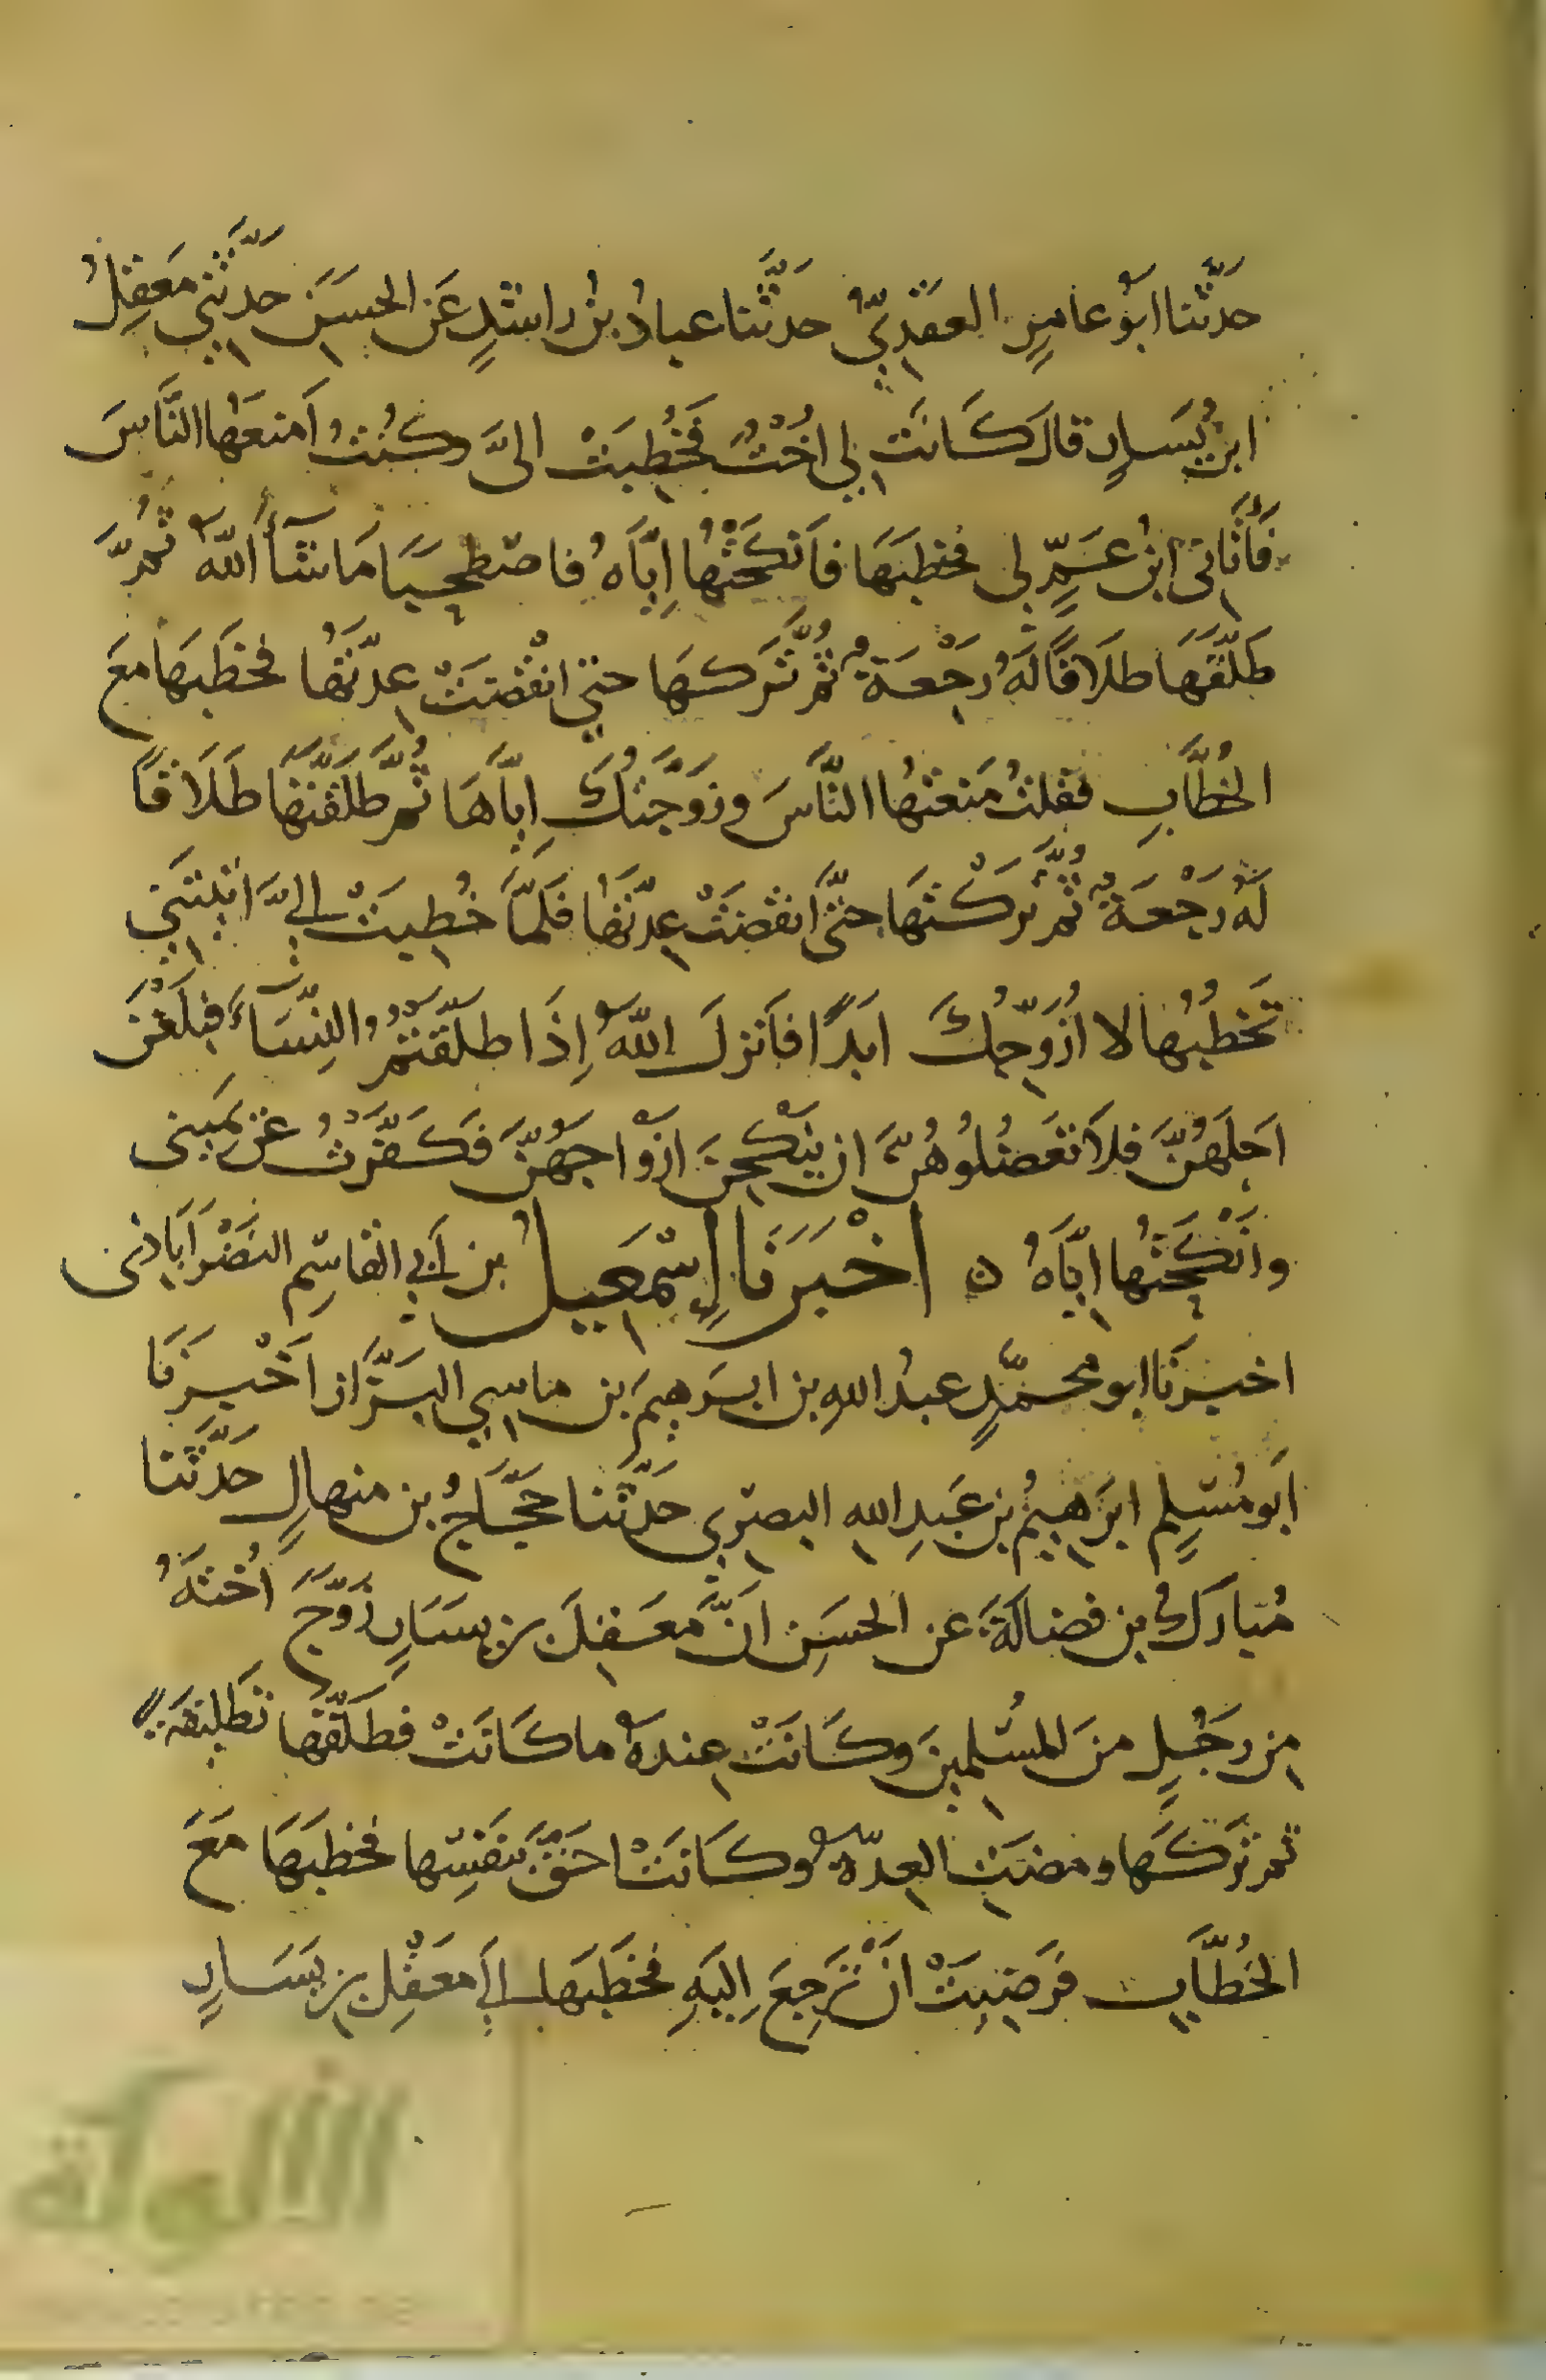 حَدَّثنا ابو عامِرٍ العَقَدِيّ حدثَّنا عبادُ بنُ راشدٍ عَن الحسَن حدثَّني مَعقِلُ
ابنُ يسَارٍ قالَ كَانَت لي اُخْتٌ فَخُطِبَتْ الىَّ وكنتُ اَمنعُها النَّاسَ
فَأتَانى ابنُ عَمٍّ لى فخطبَهَا فاَنكَحْتُها اِيَّاهُ فاصْطحبَا مَا شَأَ اللهُ ثمَّ
طَلَّقَهَا طلَاقًا لَهُ رَجْعَةٌ ثُمَّ تَركهَا حتى انْقضَتْ عِدَّتُهَا فخَطَبهَا معَ
الخُطَّابِ فقلتُ مَنعتُها النَّاسَ وزَوَّجتُكَ اِيَّاهَا ثُمَّ طَلَّقتَهَا طَلَاقًا
لَهُ رَجْعَةٌ ثُمَّ تَركْتَهَا حتَّى اَنقضَتْ عِدَّتُهَا فَلمَّا خُطِبَتْ اليَّ اَتيتَني
تَخطُبُها لا اُزَوِّجُكَ ابَدًا فاَنزلَ اللهُ اِذَا طلَّقتُمُ النِّسَاءَ فبلَغْنَ
اجلَهُنَّ فلاَ تَعضُلُوهُنَّ ان ينكِحنَ ازْواجهُنَّ فَكَفَّرْتُ عَن يَمِينى
وانْكَحْتُها ايَّاهُ ه اخْبَرَنَا اِسْمَعِيلُ بن اَبي القاسِم النصْرَاَباذى
اخبرَنَا ابو محمَّدٍ عبدُ اللهِ بن ابرَهِيمَ بن ماسِي البزَّاز اَخْبرَنَا
اَبو مُسْلِمٍ ابرَهيمُ بن عَبدِ الله البصْرِي حَدَّثنا حجَّاجُ بن منهالٍ حَدَّثَنا
مُبارَكُ بن فضالَةَ عن الحسَن انَّ مَعقِلَ بن يسَارٍ زَوَّجَ اُختَهُ
مِن رجُلٍ منَ المسْلمينَ وكَانَتْ عِندهُ ما كَانَتْ فطَلَّقَهَا تَطْلِيقَةً
ثم تَركَها ومضَتِ العِدّةُ وكَانَتْ احَقَّ بنَفسِها فخطبَهَا مَعَ
الخُطَّابِ فرَضِيَتْ انْ تَرجِعَ اِليَهِ فخَطَبَها اِلىَ مَعقِل بن يسَارٍ
الألوكة